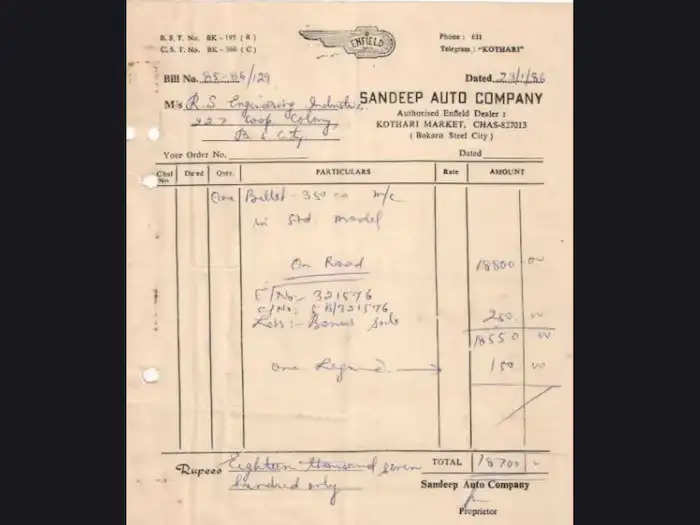 B. S. T. No. BK - 195 ( R )
C. S. T. No. BK - 360 ( C )
ENFIELD
Phone : 631
Telegram : "KOTHARI"
Bill No. 85-86/129
Dated 23/1/86
M/s R.S Engineering Industries,
227 Coop Colony,
B. S. City
SANDEEP AUTO COMPANY
Authorised Enfield Dealer :
KOTHARI MARKET, CHAS-827013
( Bokaro Steel City )
Your Order No.
Dated
Chal No. Dated Qnty. PARTICULARS Rate AMOUNT
One Bullet - 350 cc m/c
in Std. model
On Road 18800 00
E/No:- 321576
C/No:- 321576
Less:- Bonus 250 00
18550 00
One 150 00
TOTAL 18700
Rupees Eighteen thousand seven
hundred only
Sandeep Auto Company
Proprietor